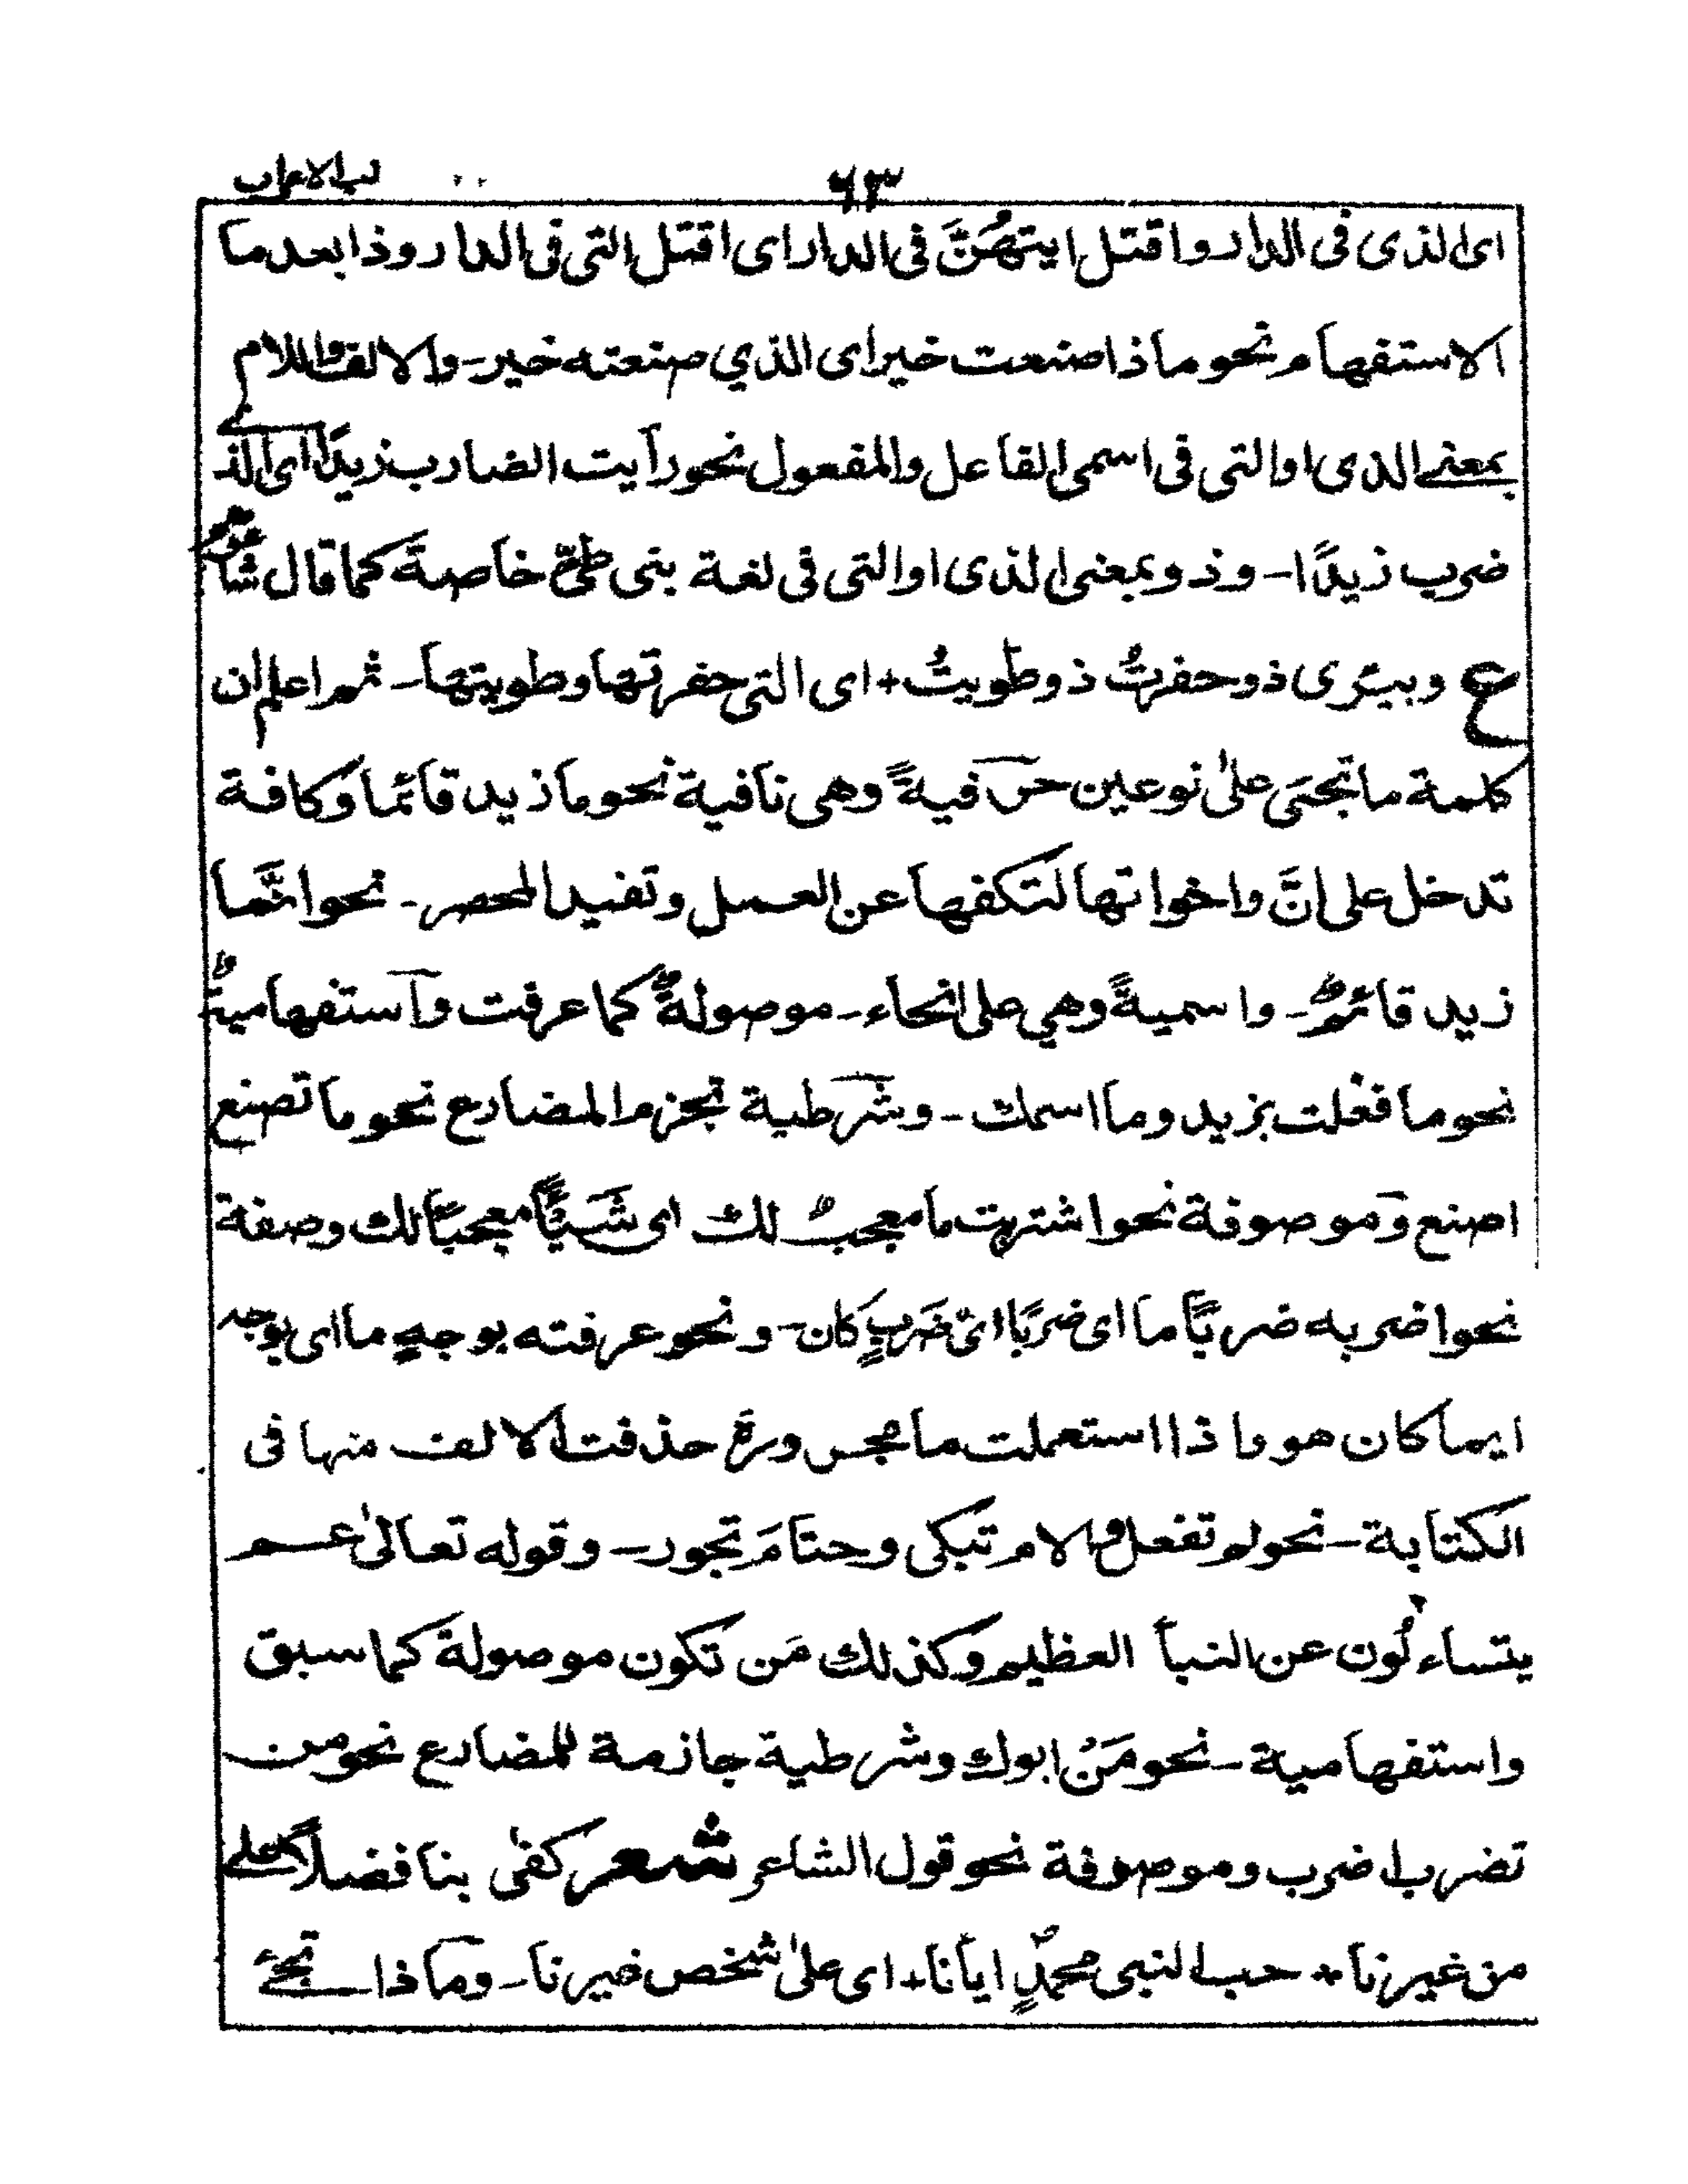 ٦٣ لب الاعراب
اى الذى فى الدار واقتل ايتهُنَّ فى الدار اى اقتل التى فى الدار وذا بعد ما
الاستفهام نحو ما ذا صنعت خير اى الذي صنعته خير - والالف واللام
بمعنے الذى او التى فى اسمى الفاعل والمفعول نحو رأيت الضارب زيدًا اى الذے
ضرب زيدًا - وذو بمعنى الذى او التى فى لغة بنى طىّ خاصة كما قال شاعر
ع وبيئرى ذو حفرتُ ذو طويتُ + اى التى حفرتها وطويتها - ثم اعلم ان
كلمة ما تجئى علىٰ نوعين حرفيةً وهى نافية نحو ما زيد قائما وكافة
تدخل على انَّ واخواتها لتكفها عن العمل وتفيد الحصر - نحو انَّما
زيد قائمٌ - واسميةً وهي على انحاء - موصولةٌ كما عرفت واستفهاميةٌ
نحو ما فعلت بزيد وما اسمك - وشرطية تجزم المضارع نحو ما تصنع
اصنع وموصوفة نحو اشتريت ما معجبٌ لك اى شَيئًا معجبًا لك وصفة
نحو اضربه ضربًا ما اى ضربًا اىَّ ضَربٍ كان - ونحو عرفته بوجهٍ ما اى بوجه
ايما كان هو واذا استعملت ما مجرورة حذفت الالف منها فى
الكتابة - نحو لم تفعل والام تبكى وحتامَ تجور - وقوله تعالىٰ عم
يتساءلُون عن النبأ العظيم وكذلك مَن تكون موصولة كما سبق
واستفهامية - نحو مَنْ ابوك وشرطية جازمة للمضارع نحو من
تضرب اضرب وموصوفة نحو قول الشاعر شعر كفٰى بنا فضلاً علے
من غيرنا + حب النبى محمدٍ ايانا + اى علىٰ شخص غيرنا - وماذا تجئے